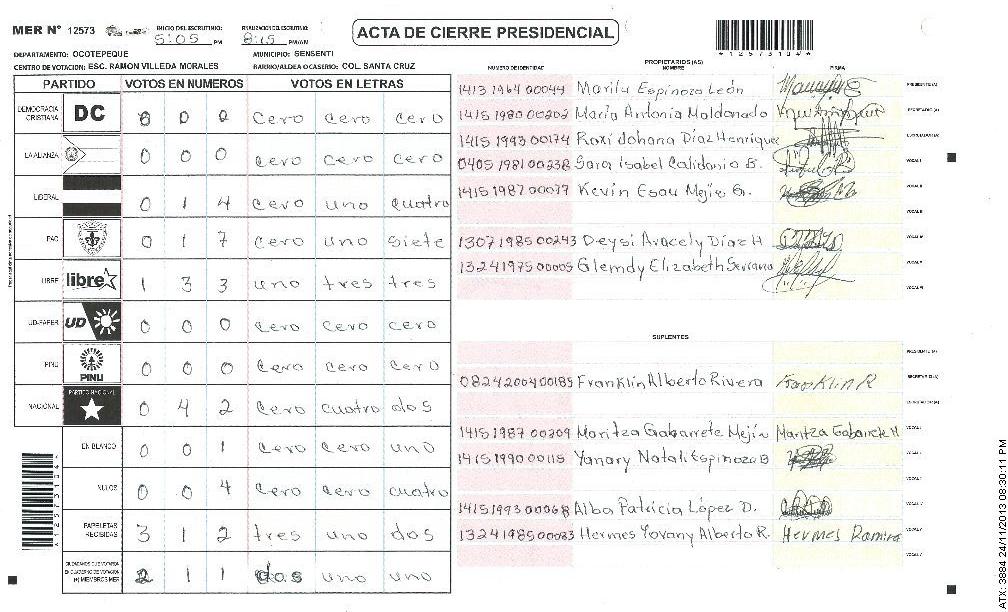 MER Nº 12573
INICIO DEL ESCRUTINIO: 5:05 PM
FINALIZACION DEL ESCRUTINIO: 8:15 PM/AM
ACTA DE CIERRE PRESIDENCIAL
*12573104*
DEPARTAMENTO: OCOTEPEQUE
MUNICIPIO: SENSENTI
CENTRO DE VOTACION: ESC. RAMON VILLEDA MORALES
BARRIO/ALDEA O CASERIO: COL. SANTA CRUZ
PARTIDO VOTOS EN NUMEROS VOTOS EN LETRAS
DEMOCRACIA CRISTIANA DC 0 0 0 cero cero cero
LA ALIANZA 0 0 0 cero cero cero
LIBERAL 0 1 4 cero uno cuatro
PAC 0 1 7 cero uno siete
LIBRE libre 1 3 3 uno tres tres
UD-FAPER UD 0 0 0 cero cero cero
PINU PINU 0 0 0 cero cero cero
NACIONAL PARTIDO NACIONAL 0 4 2 cero cuatro dos
EN BLANCO 0 0 1 cero cero uno
NULOS 0 0 4 cero cero cuatro
PAPELETAS RECIBIDAS 3 1 2 tres uno dos
CIUDADANOS QUE VOTARON EN CUADERNO DE VOTACION (+) MIEMBROS MER 2 1 1 dos uno uno
PROPIETARIOS (AS)
NUMERO DE IDENTIDAD NOMBRE FIRMA
1413 1964 00044 Marilu Espinoza León PRESIDENTE (A)
1415 1980 00202 María Antonia Maldonado SECRETARIO (A)
1415 1993 00174 Roxi Johana Díaz Henriquez ESCRUTADOR (A)
0405 1981 00238 Sara Isabel Calidonio B. VOCAL I
1415 1987 00077 Kevin Esau Mejía G. VOCAL II
VOCAL III
1307 1985 00243 Deysi Aracely Díaz H VOCAL IV
1324 1975 00005 Glemdy Elizabeth Serrano VOCAL V
VOCAL VI
SUPLENTES
PRESIDENTE (A)
0824 2004 00185 Franklin Alberto Rivera Franklin R SECRETARIO (A)
ESCRUTADOR (A)
1415 1987 00209 Maritza Gabarrete Mejía Maritza Gabarrete M VOCAL I
1415 1990 00115 Yanary Natali Espinoza B
1415 1993 00068 Alba Patricia López D.
1324 1985 00083 Hermes Yovany Alberto R. Hermes Ramiro
*12573104*
ATX: 3884 24/11/2013 08:30:11 PM